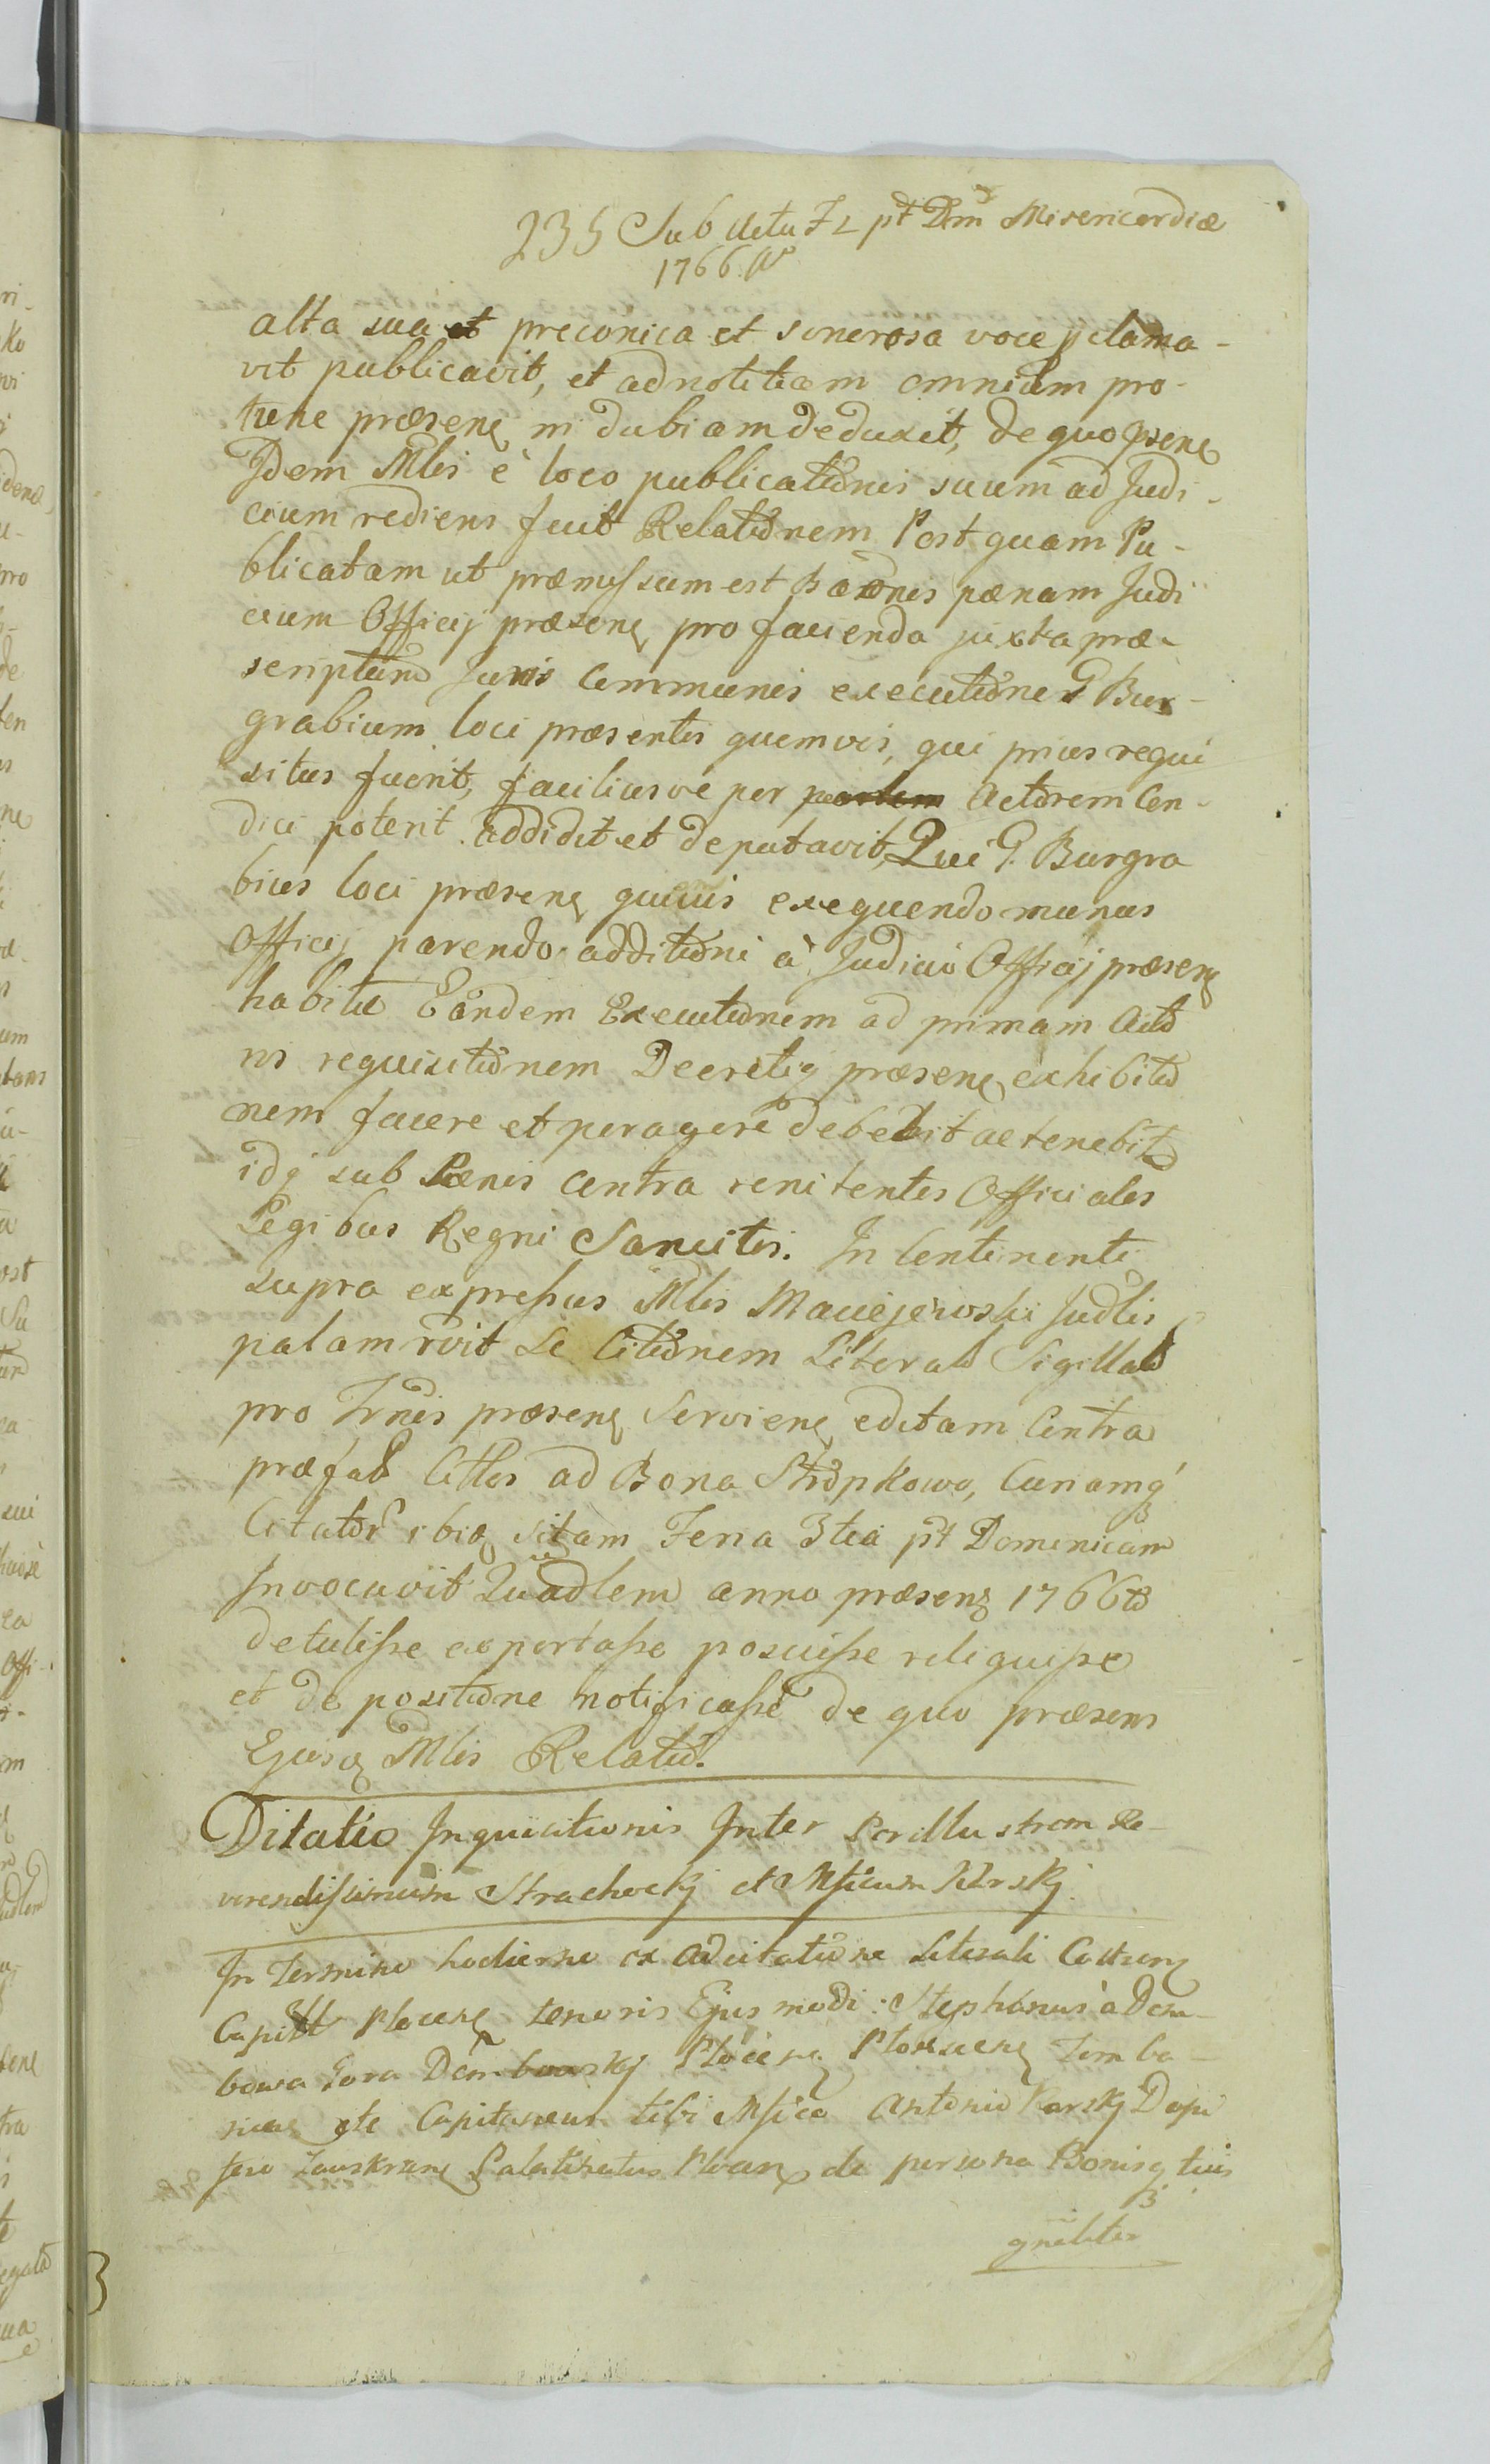 235 Sub actu F 2 pt Dm Misericordiæ
1766. A°
alta sua et preconica et sonorosa voce pclama-
vit publicavit, et ad notitiam omnium pro
tunc præsenę in dubiam deduxit, de quo psenę
Idem Mlis è loco publicationis suum ad Judi-
cium rediens fecit Relationem Post quam Pu-
blicatam ut præmissum est Baonis pænam Judi
cium Officij præsenę pro facienda juxta præ-
scriptum Juris Communis executione G Bur-
grabium loci præsentis quemvis, qui prius requi
situs fuerit, faciliusvè per partem Actorem Con-
dici poterit addidit et deputavit, Qui G. Burgra
bius loci præsenę quivis exequendo munus
Officij parendo additioni à Judicio Officij præsenę
habitæ Eandem Executionem ad primam Acto
ris requisitionem Decretiq præsenę exhibitio
nem facere et peragere debebit ac tenebit
idq sub Pænis contra renitentes Officiales
Legibus Regni Sancitis. In Continenti
supra expressus Mlis Maciejewski Judlis
palam rvit Se Citaonem Literal Sigillat
pro Trnis præsenę Servienę editam Contra
præfat Cittos ad Bona Stropkowo, Curiamq
Citator ibiq sitam Feria 3tia pt Dominicam
Invocavit Quadlem anno præsenę 1766to
detulisse exportasse posuisse reliquisse
et de positione notificasse de quo præsens
Ejusq Mlis Relatio.
Dilatio Inquisitionis Inter Perillustrem Re-
verendissimum Strachocki et Mficum Karskj
In Termino hodierno ex Adcitatione Literali Castrenę
Capitt Plocenę tenoris Ejusmodi: Stephanus à Dem-
bowa Gora Dembowskj Plocenę Tomba-
nieę etc Capitaneus tibi Mfico Antonio Karskj Dapi
fero Zawskrzenę Palatinatus Plocenę de persona Bonisq tuis
gnãliter